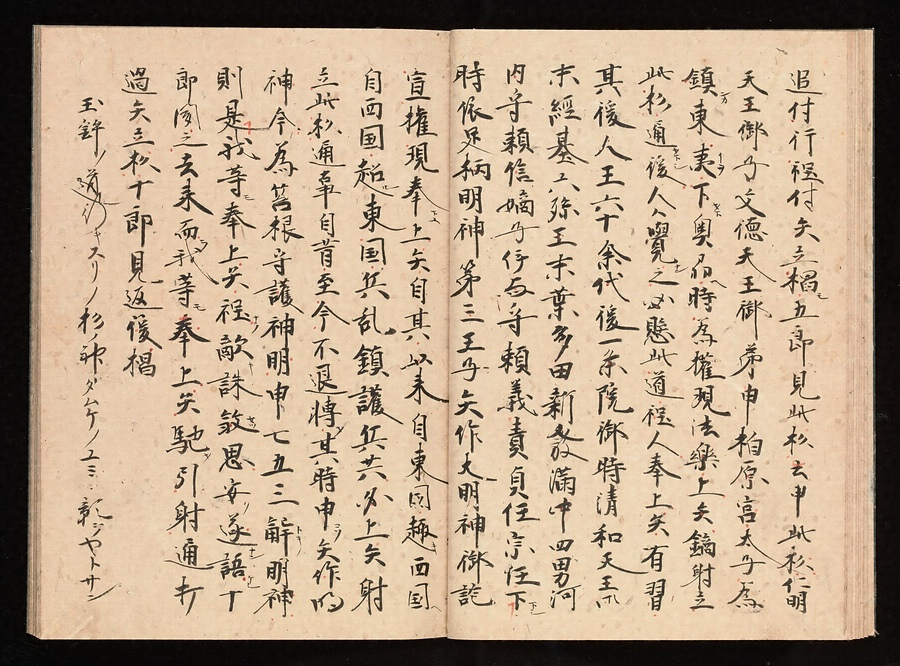 追付行程付矢立榲五郎見此杉云申此杉仁明
天王御子文德天王御弟申柏原宮太子為
鎮東夷下奥州時為權現法樂上矢鏑射立
此杉通後人人覺之必懸此道程人奉上矢有習
其後人王六十余代後一条院御時清和天王
末經基六孫王末葉多田新發滿中四男河
内守賴信嫡子伊与守賴義責貞任宗任下
時依足柄明神第三王子矢作大明神御詫
宣權現奉上矢自其以来自東国趣西国
自西国超東国兵乱鎮護兵共必上矢射
立此杉通事自昔至今不退轉其時申矢作明
神今為筥根守護神明申七五三解明神
則是我等奉上矢程敵誅敛思安遂語十
即聞之去来而我等奉上矢馳引射通打
過矢立杉十郎見返後榲
玉鉾ノ道行キスリノ杉ノ神タムケノユミニ